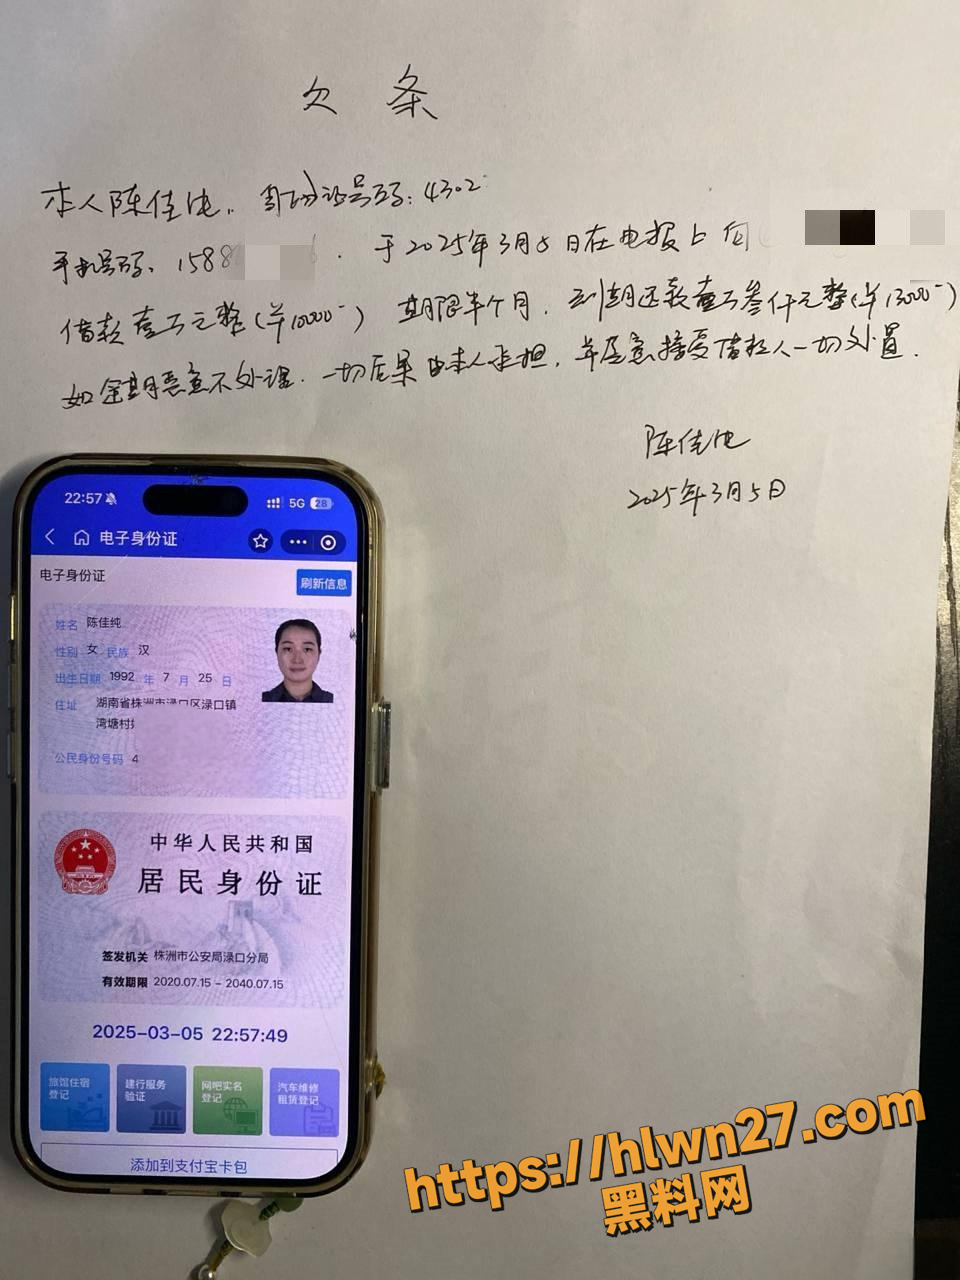 欠条
本人陈佳纯，身份证号码：4302
手机号码：1588 6．于2025年3月5日在电报上向
借款壹万元整（￥10000-）期限半个月．到期还款壹万叁仟元整（￥13000-）
如逾期恶意不处理．一切后果由本人承担，并愿意接受借款人一切处置．
陈佳纯
2025年3月5日
22:57
5G 28
电子身份证
电子身份证
刷新信息
姓名 陈佳纯
性别 女 民族 汉
出生日期 1992 年 7 月 25 日
住址 湖南省株洲市渌口区渌口镇
湾塘村
公民身份号码 4
中华人民共和国
居民身份证
签发机关 株洲市公安局渌口分局
有效期限 2020.07.15 - 2040.07.15
2025-03-05 22:57:49
旅馆住宿
登记
建行服务
验证
网吧实名
登记
汽车维修
租赁登记
添加到支付宝卡包
https://hlwn27.com
黑料网